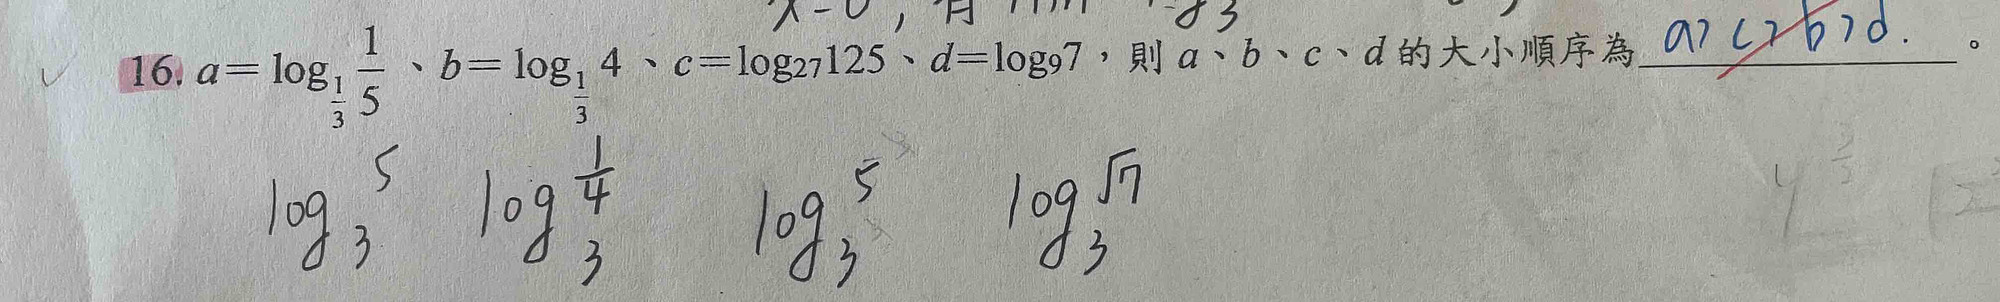 16. a=log_{1/3} 1/5、b=log_{1/3} 4、c=log₂₇125、d=log₉7，則 a、b、c、d 的大小順序為 a>c>b>d. 。
log₃ 5 log₃ 1/4 log₃ 5 log₃ √7